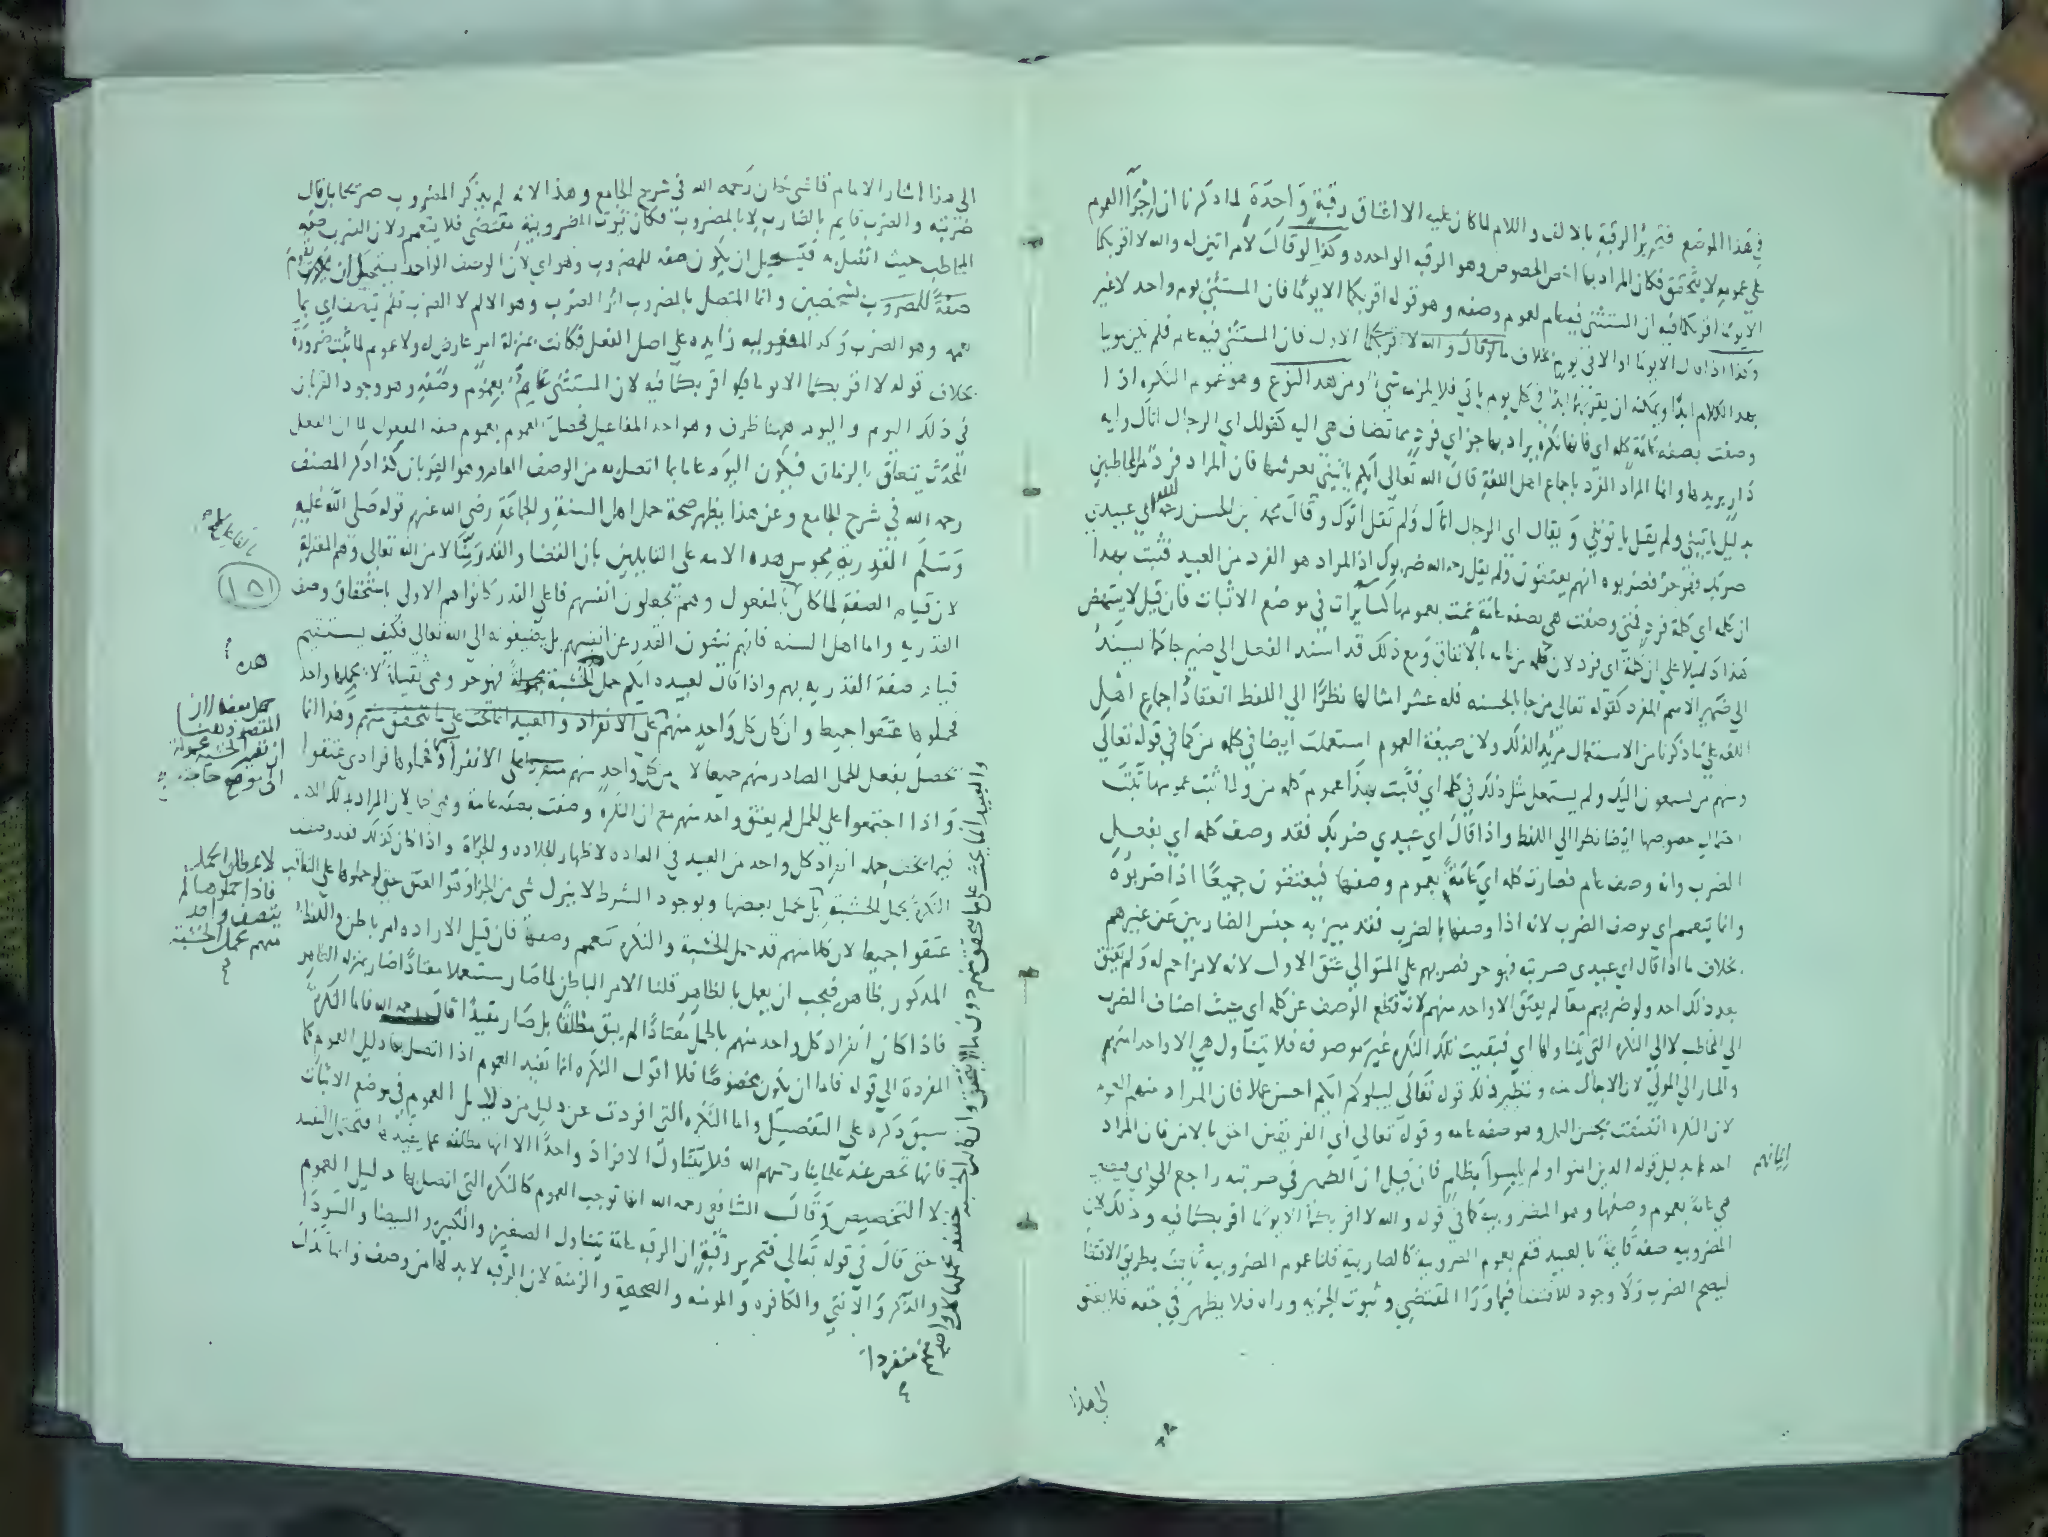 في هذا الموضع فتحرير الرقبة بالالف واللام لما كان عليه الا اعتاق رقبة واحدة لما ذكرنا ان اجراء العموم
على عمومه لا يتحقق فكان المراد بها اخص الخصوص وهو الرقبه الواحده وكذا لو قال لامراتين له والله لا اقربكما
الا يوما اقربكما فيه ان المستثنى فيه عام لعموم وصفه وهو قوله اقربكما الا يوما فان المستثنى يوم واحد لا غير
وكذا اذا قال الا يوما او الا في يوم بخلاف ما لو قال والله لا اقربكما الاول فان المستثنى فيه عام فلم يكن موليا
بهذا الكلام ابدا ويمكنه ان يقربهما ابدا في كل يوم ياتي فلا يلزمه شيء ومن هذا النوع وهو عموم النكره اذا
وصفت بصفه عامة كلمه اي فانها نكره يراد بها جزء اي فرد مما تضاف هي اليه كقولك اي الرجال اتاك واية
دار يريدها وانما المراد الفرد باجماع اهل اللغة قال الله تعالى ايكم ياتيني بعرشها فان المراد فرد من المخاطبين
بدليل ياتيني ولم يقل ياتونني ويقال اي الرجال اتاك ولم تقل اتوك وقال محمد بن الحسن رحمه الله اي عبيدي
ضربك فهو حر فضربوه انهم يعتقون ولم يقل رحمه الله ضربوك اذ المراد هو الفرد من العبيد فثبت بهذا
ان كلمه اي كلمة فرد فمتى وصفت هي بصفه عامة عمت بعمومها كسائر النكرات في موضع الاثبات فان قيل لا ينتهض
هذا دليلا على ان كلمة اي فرد لان كلمه من عامه بالاتفاق ومع ذلك قد اسند الفعل الى ضميرها كما يسند
الى ضمير الاسم المفرد كقوله تعالى من جا بالحسنه فله عشر امثالها نظرا الى اللفظ انعقاد اجماع اهل
اللغه على ما ذكرنا من الاستعمال مريد الذكر ولان صيغة العموم استعملت ايضا في كلمه من كما في قوله تعالى
ومنهم من يستمعون اليك ولم يستعمل مثل ذلك في كلمه اي فثبت بهذا عموم كلمه من ولما ثبت عمومها ثبت
احتمال خصوصها ايضا نظرا الى اللفظ واذا قال اي عبيدي ضربك فقد وصف كلمه اي بفعل
الضرب وانه وصف عام فصارت كلمه اي عامة بعموم وصفها فيعتقون جميعا اذا ضربوه
وانما يتعمم اي بوصف الضرب لانه اذا وصفها بالضرب فقد ميز به جنس الضاربين عن غيرهم
بخلاف ما اذا قال اي عبيدي ضربته فهو حر فضربهم على التوالي عتق الاول لانه لا مزاحم له ولم يعتق
بعد ذلك احد ولو ضربهم معا لم يعتق الا واحد منهم لانه قطع الوصف عن كلمه اي حيث اضاف الضرب
الى المخاطب لا الى النكره التي تناولها اي فبقيت تلك النكره غير موصوفه فلا يتناول هي الا واحدا منهم
والخيار الى المولى لان الاجمال منه ونظير ذلك قوله تعالى ليبلوكم ايكم احسن عملا فان المراد منهم العموم
لان النكره اتصفت بحسن العمل وهو صفه عامه وقوله تعالى اي الفريقين احق بالامن فان المراد
احدهما بدليل قوله الذين امنوا ولم يلبسوا بظلم فان قيل ان الضمير في ضربته راجع الى اي فيصير
ايمانهم
هي عامة بعموم وصفها وهو المضروبية كما في قوله والله لا اقربكما الا يوما اقربكما فيه وذلك لان
المضروبيه صفة قايمة بالعبيد فتعم بعموم المضروبية كالضاربية قلنا عموم المضروبيه ثابت بطريق الاقتضا
ليصح الضرب ولا وجود للاقتضا فيما ورا المقتضى وثبوت الحريه وراه فلا يظهر في حقه فلا يعتق
الى هذا
الى هذا اشار الامام قاضي خان رحمه الله في شرح الجامع وهذا لانه لم يذكر المضروب صريحا بل قال
ضربته والضرب قايم بالضارب لا بالمضروب فكان ثبوت المضروبية مقتضى فلا يتعمم ولان الضرب صفه
المخاطب حيث اتصل به فيستحيل ان يكون صفه للمضروب وهو اي لان الوصف الواحد يستحيل ان يقوم
صفة للمضروب لشخصين وانما المتصل بالمضروب اثر الضرب وهو الالم لا الضرب فلم يتصف اي بما
يعمه وهو الضرب وكذا المفعوليه زايده على اصل الفعل فكانت بمنزلة امر عارض له ولا عموم لما ثبت ضرورة
بخلاف قوله لا اقربكما الا يوما اقربكما فيه لان المستثنى عام بعموم وصفه وهو وجود القربان
في ذلك اليوم واليوم ههنا ظرف وهو احد المفاعيل فحصل العموم بعموم صفه المفعول لما ان الفعل
المحدث يتعلق بالزمان فيكون اليوم عاما بما اتصل به من الوصف العام وهو القربان كذا ذكر المصنف
رحمه الله في شرح الجامع وعن هذا يظهر صحة حمل اهل السنة والجماعة رضي الله عنهم قوله صلى الله عليه
وسلم القدرية مجوس هذه الامه على القايلين بان القضا والقدر منا لا من الله تعالى وهم المعتزلة
لان قيام الصفة لما كان بالمفعول وهم يجعلون انفسهم فاعلي القدر كانوا هم الاولى باستحقاق وصف
بالفاعل لا
١٥١
القدريه واما اهل السنه فانهم ينفون القدر عن انفسهم بل يضيفونه الى الله تعالى فكيف يستقيم
قيام صفة القدريه بهم واذا قال لعبيده ايكم حمل الخشبة فهو حر وهي ثقيلة لا يحملها واحد
هذه
فحملوها عتقوا جميعا وان كان كل واحد منهم على الانفراد والعبيد انما يحث على ما يتحقق منهم وهذا انما
يحصل بفعل الحمل الصادر منهم جميعا لا من كل واحد منهم على الانفراد فحملوها فرادى عتقوا
حمل بعضها اذ
المقصود هنا
ان تصير الخشبة محمولة
الى موضع حاجته
واذا اجتمعوا على الحمل لم يعتق واحد منهم مع ان النكره وصفت بصفه عامة وهي الحمل لان المراد بذلك اللفظ
فيما يخف حمله انفراد كل واحد من العبيد في العاده لاظهار الجلاده والجراة واذا كان كذلك فقد وصف
النكرة بحمل الخشبة بل حمل بعضها وبوجود الشرط لا ينزل شي من الجزاء وقتوا العتق حتى لو حملوها على التعاقب
لا عن مطلق الحمل
فاذا حملوها لم
يتصف واحد
منهم بحمل الخشبة
عتقوا جميعا لان كلا منهم قد حمل الخشبة والنكره تعمم وصفها فان قيل الاراده امر باطن واللفظ
المذكور ظاهر فيجب ان يعمل بالظاهر قلنا الامر الباطن لما صار مستعملا معتادا صار بمنزله الظاهر
فاذا كان انفراد كل واحد منهم بالحمل معتادا لم يبق مطلقا بل صار مقيدا قال رحمه الله فاما النكرة
المفردة الى قوله فاما ان يكون مخصوصا فلا اقول النكره انما تفيد العموم اذا اتصل بها دليل العموم كما
سبق ذكره على التفصيل واما النكره التي افردت عن دليل من دلايل العموم في موضع الاثبات
فانها تخص عند علماينا رحمهم الله فلا يتناول الا فردا واحدا الا انها مطلقه عما يقيدها فتحتمل التقييد
لا التخصيص وقال الشافعي رحمه الله انها توجب العموم كالنكره التي اتصل بها دليل العموم
حتى قال في قوله تعالى فتحرير رقبة ان الرقبه عامة يتناول الصغير والكبير والبيضا والسودا
والذكر والانثى والكافره والمومنه والصحيحة والزمنة لان الرقبه لا بد لها من وصف وانها بذلك
والعبيد انما يحث على ما يتحقق منهم دون ما لا يتحقق وان كان حقيقه عملها كل واحد منهم منفردا